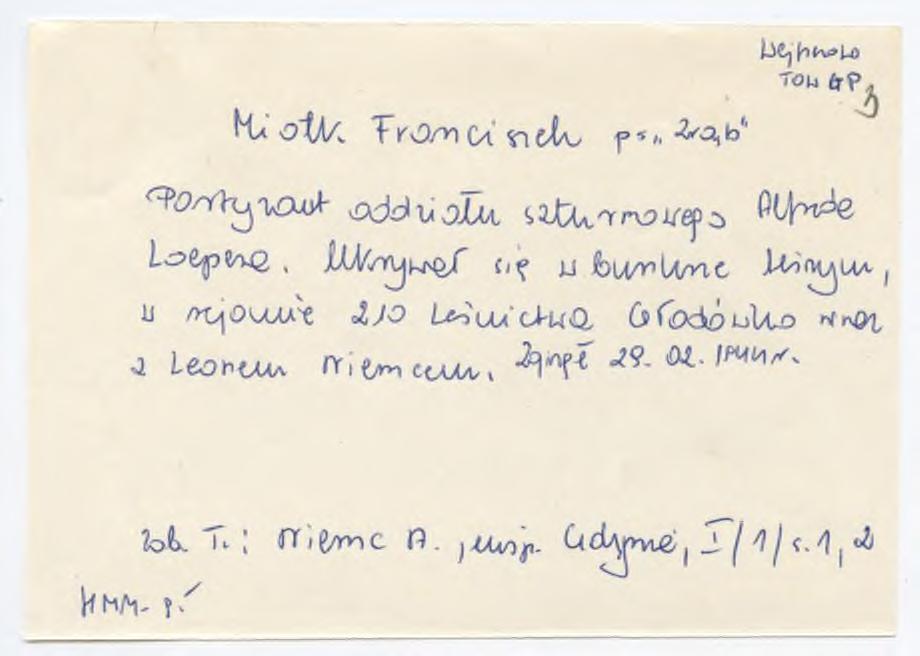 Wejherowo
TOW GP
3
Miotk Franciszek ps. „Zrąb"
Partyzant oddziału szturmowego Alfreda
Loepera. Ukrywał się w bunkrze leśnym,
w rejonie 210 Leśnictwa Głodówko wraz
z Leonem Niemcem. Zginął 29. 02. 1944 r.
zob. T.: Niemc A., insp. Gdynia, I/1/s.1, 2